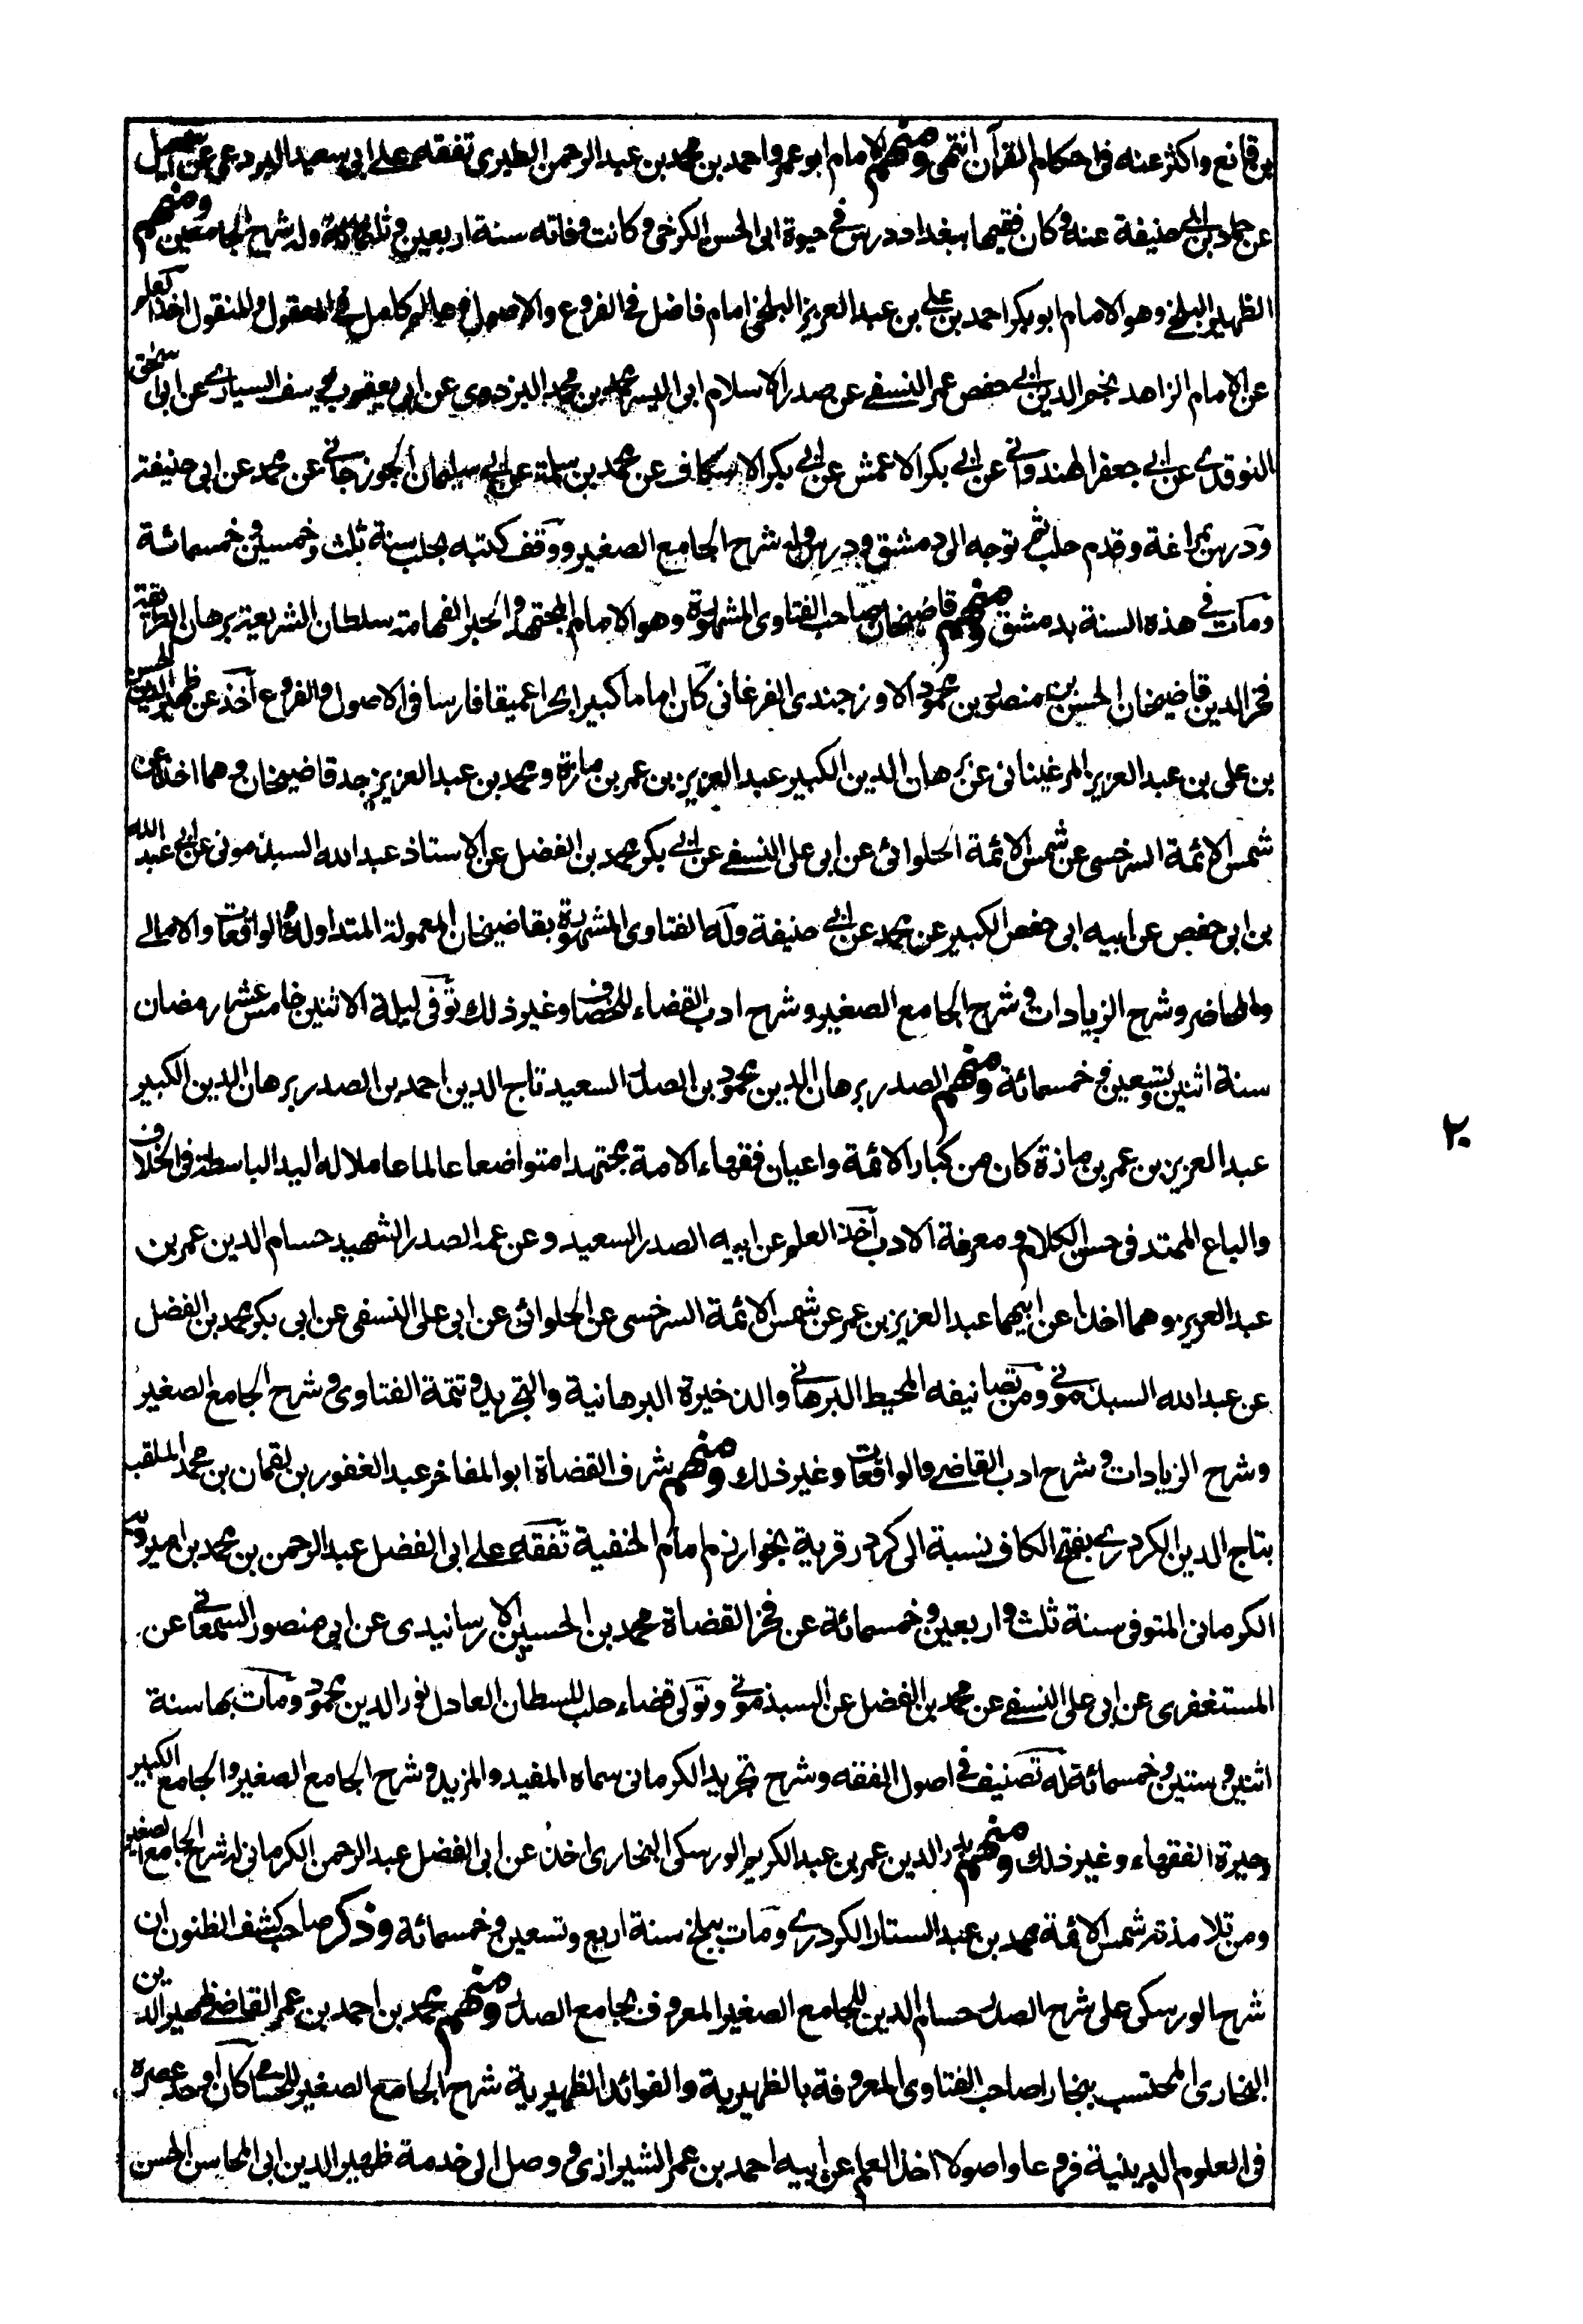 بن قانع واكثر عنه فى احكام القرآن انتهى ومنهم الامام ابو عمرو احمد بن محمد بن عبد الرحمن الطبرى تفقه على ابى سعيد البردعى عن اسمعيل
عن حماد بن ابى حنيفة عنه وكان فقيها ببغداد درس فى حيوة ابى الحسن الكرخى وكانت وفاته سنة اربعين وثلثمائة وله شرح الجامعين ومنهم
الظهير البلخى وهو الامام ابو بكر احمد بن على بن عبد العزيز البلخى امام فاضل فى الفروع والاصول وعالم كامل فى المعقول والمنقول اخذ العلم
عن الامام الزاهد نجم الدين ابى حفص عمر النسفى عن صدر الاسلام ابى اليسر محمد بن محمد البزدوى عن ابى يعقوب يوسف السيارى عن ابى اسحق
النوقدى عن ابى جعفر الهندوانى عن ابى بكر الاعمش عن ابى بكر الاسكاف عن محمد بن سلمة عن ابى سليمان الجوزجانى عن محمد عن ابى حنيفة
ودرس بمراغة وقدم حلب ثم توجه الى دمشق ودرس وله شرح الجامع الصغير ووقف كتبه بحلب سنة ثلث وخمسين وخمسمائة
ومات فى هذه السنة بدمشق ومنهم قاضيخان صاحب الفتاوى المشهورة وهو الامام المجتهد والحبر الفهامة سلطان الشريعة برهان الطريقة
فخر الدين قاضيخان الحسن بن منصور بن محمود الاوزجندى الفرغانى كان اماما كبيرا بحرا عميقا فارسا فى الاصول والفروع اخذ عن ظهير الدين الحسن
بن على بن عبد العزيز المرغينانى عن برهان الدين الكبير عبد العزيز بن عمر بن مازة ومحمد بن عبد العزيز جد قاضيخان وهما اخذا عن
شمس الائمة السرخسى عن شمس الائمة الحلوائى عن ابى على النسفى عن ابى بكر محمد بن الفضل عن الاستاذ عبد الله السبذمونى عن ابى عبد الله
بن ابى حفص عن ابيه ابى حفص الكبير عن محمد عن ابى حنيفة وله الفتاوى المشهورة بقاضيخان المعمولة المتداولة والواقعات والامالى
والمحاضر وشرح الزيادات وشرح الجامع الصغير وشرح ادب القضاء للخصاف وغير ذلك توفى ليلة الاثنين خامس عشر رمضان
سنة اثنين وتسعين وخمسمائة ومنهم الصدر برهان الدين محمود بن الصدر السعيد تاج الدين احمد بن الصدر برهان الدين الكبير
عبد العزيز بن عمر بن مازة كان من كبار الائمة واعيان فقهاء الامة مجتهدا متواضعا عالما عاملا له اليد الباسطة فى الخلاف
والباع الممتد فى حسن الكلام ومعرفة الادب اخذ العلم عن ابيه الصدر السعيد وعن عمه الصدر الشهيد حسام الدين عمر بن
عبد العزيز وهما اخذا عن ابيهما عبد العزيز بن عمر عن شمس الائمة السرخسى عن الحلوائى عن ابى على النسفى عن ابى بكر محمد بن الفضل
عن عبد الله السبذمونى ومن تصانيفه المحيط البرهانى والذخيرة البرهانية والتجريد وتتمة الفتاوى وشرح الجامع الصغير
وشرح الزيادات وشرح ادب القاضى والواقعات وغير ذلك ومنهم شرف القضاة ابو المفاخر عبد الغفور بن لقمان بن محمد الملقب
بتاج الدين الكردرى بفتح الكاف نسبة الى كردر قرية بخوارزم امام الحنفية تفقه على ابى الفضل عبد الرحمن بن محمد بن اميرويه
الكرمانى المتوفى سنة ثلث واربعين وخمسمائة عن فخر القضاة محمد بن الحسين الارسانيدى عن ابى منصور السمعانى عن
المستغفرى عن ابى على النسفى عن محمد بن الفضل عن السبذمونى وتولى قضاء حلب للسطان العادل نور الدين محمود ومات بها سنة
اثنين وستين وخمسمائة له تصنيف فى اصول الفقه وشرح تجريد الكرمانى سماه المفيد والمزيد وشرح الجامع الصغير والجامع الكبير
وحيرة الفقهاء وغير ذلك ومنهم بدر الدين عمر بن عبد الكريم الورسكى البخارى اخذ عن ابى الفضل عبد الرحمن الكرمانى له شرح الجامع الصغير
ومن تلامذته شمس الائمة محمد بن عبد الستار الكردرى ومات ببلخ سنة اربع وتسعين وخمسمائة وذكر صاحب كشف الظنون ان
شرح الورسكى على شرح الصدر حسام الدين للجامع الصغير المعروف بجامع الصدر ومنهم محمد بن احمد بن عمر القاضى ظهير الدين
البخارى المحتسب ببخارا صاحب الفتاوى المعروفة بالظهيرية والفوائد الظهيرية شرح الجامع الصغير للحسامى كان اوحد عصره
فى العلوم الدينية فروعا واصولا اخذ العلم عن ابيه احمد بن عمر الشيرازى ووصل الى خدمة ظهير الدين ابى المحاسن الحسن
٢٠